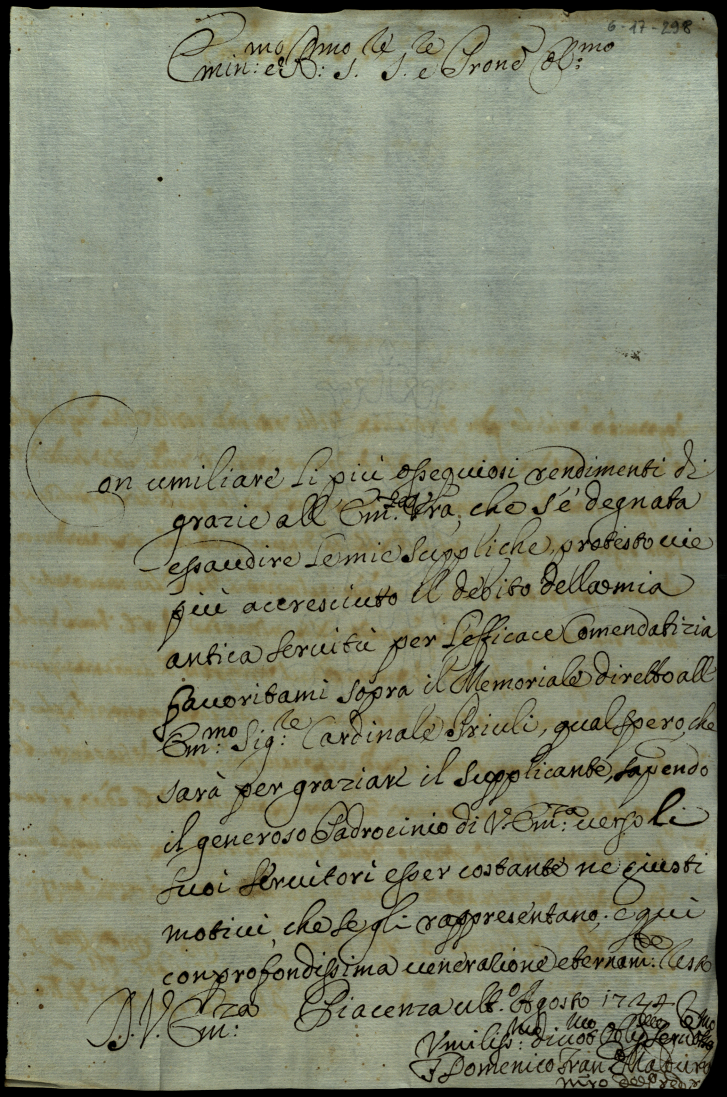 6-17-298
Emin:mo e R:mo S:re S:re e Prone Ob:mo
Con umiliare li più ossequiosi rendimenti di
grazie all Em:za Vra, che s'è degnata
essaudire le mie suppliche, protesto uie
più accresciuto il debito della mia
antica seruitù per l'efficace Comendatizia
fauoritami sopra il Memoriale diretto all
Em:mo Sig:re Cardinale Priuli, qual spero, che
sarà per graziare il supplicante, sapendo
il generoso Padrocinio di V. Em:za uerso li
suoi seruitori esser costante ne giusti
motiui, che se gli rappresentano; e qui
con profondissima uenerazione eternam:te Resto
D. V. Em:za Piacenza ult:o Agosto 1724
Vmiliss:mo diuot:mo Obl:mo Seruo
F Domenico Fran:co